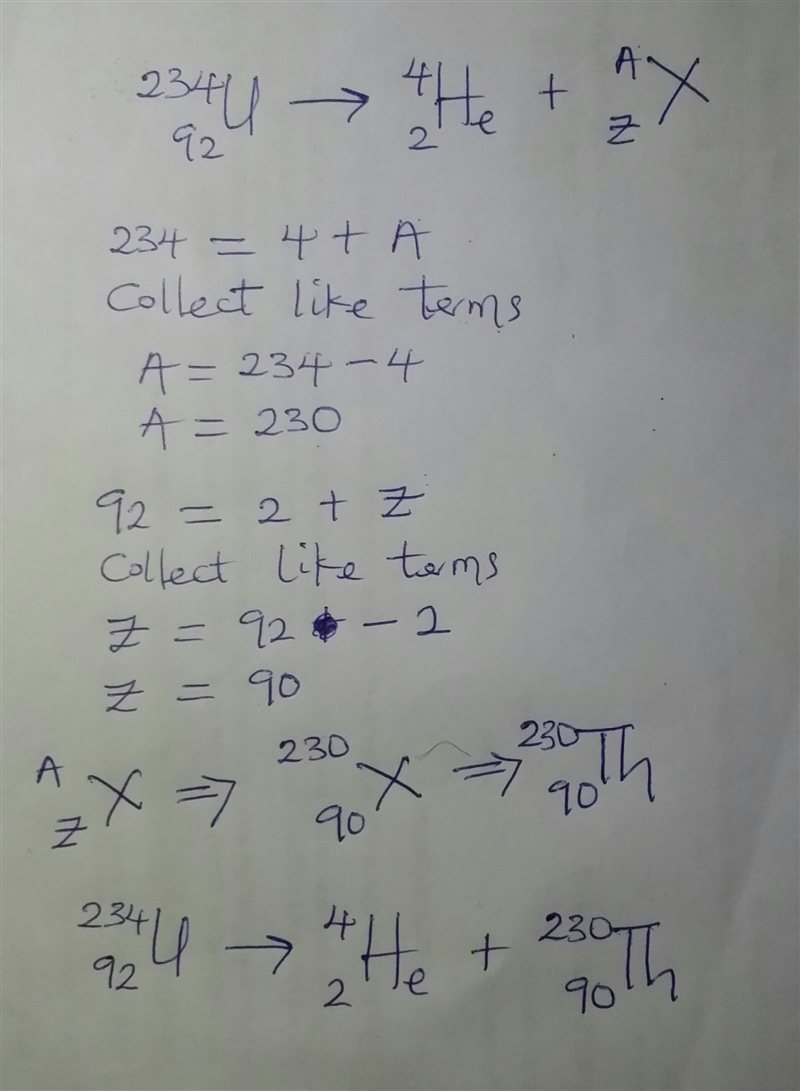 ²³⁴₉₂U → ⁴₂He + ᴬ_Z X
234 = 4 + A
Collect like terms
A = 234 - 4
A = 230
92 = 2 + Z
Collect like terms
Z = 92 - 2
Z = 90
ᴬ_Z X ⇒ ²³⁰₉₀X ⇒ ²³⁰₉₀Th
²³⁴₉₂U → ⁴₂He + ²³⁰₉₀Th